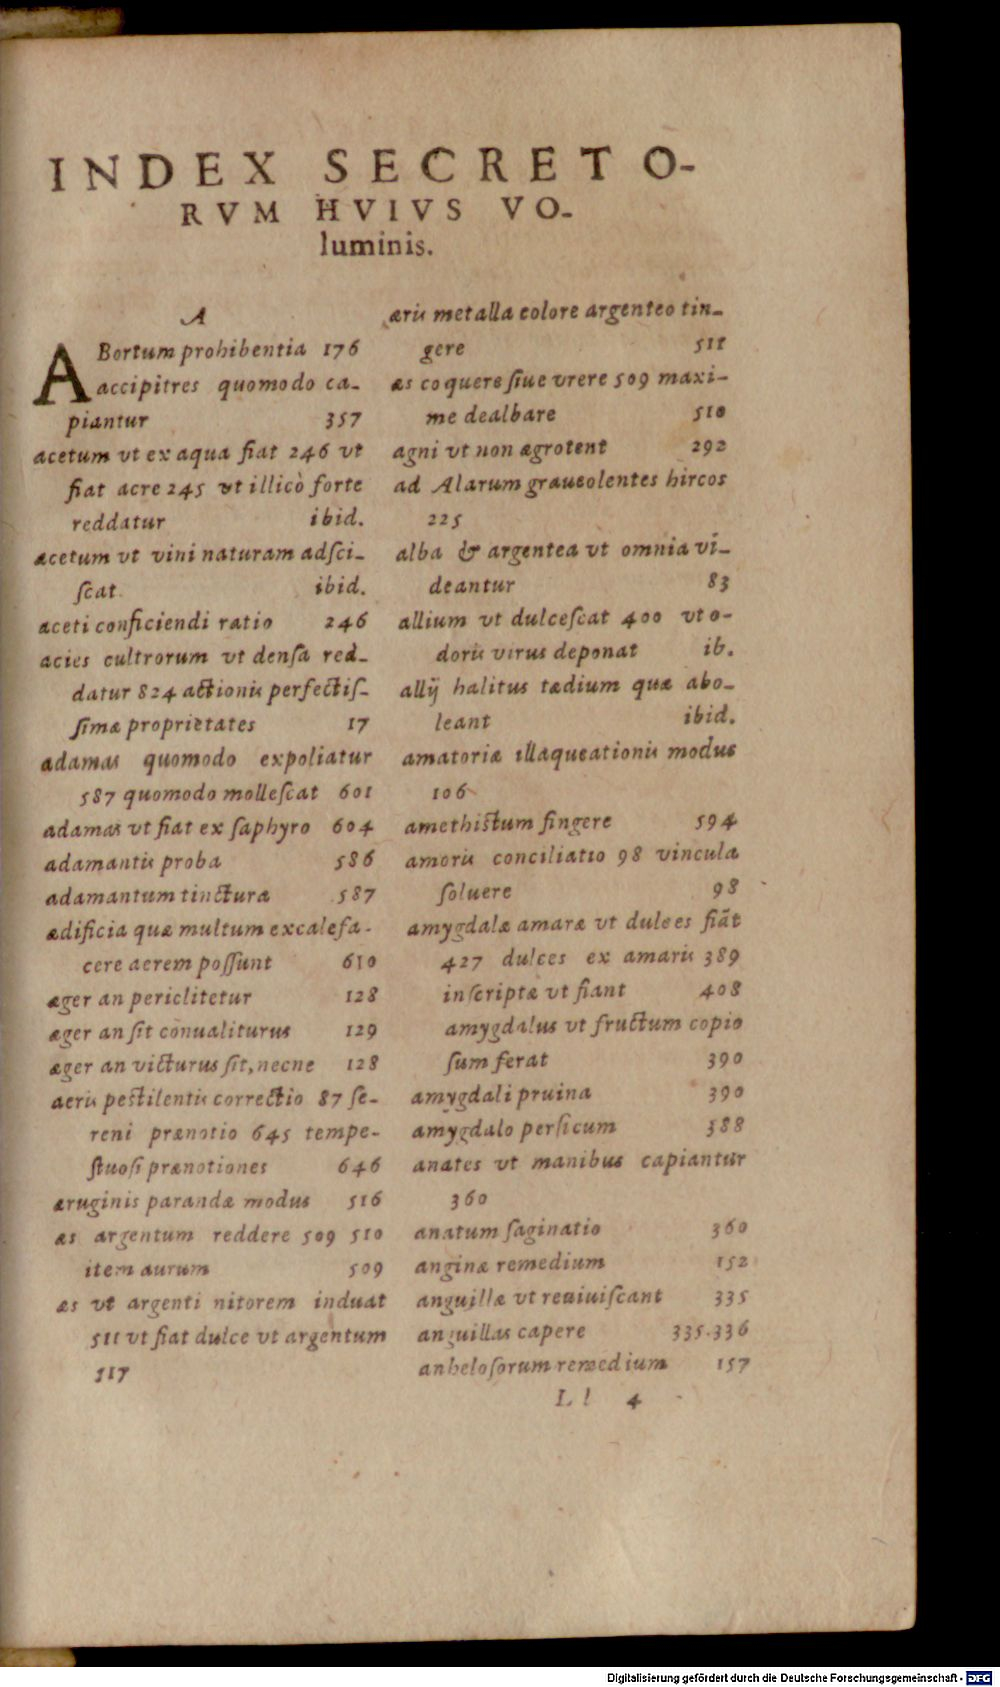 INDEX SECRETO-
RVM HVIVS VO-
luminis.
A
ABortum prohibentia 176
accipitres quomodo ca-
piantur 357
acetum vt ex aqua fiat 246 vt
fiat acre 245 vt illicò forte
reddatur ibid.
acetum vt vini naturam adſci-
ſcat ibid.
aceti conficiendi ratio 246
acies cultrorum vt denſa red-
datur 824 actionis perfectiſ-
ſimæ proprietates 17
adamas quomodo expoliatur
587 quomodo molleſcat 601
adamas vt fiat ex ſaphyro 604
adamantis proba 586
adamantum tincturæ 587
ædificia quæ multum excalefa-
cere aerem poſſunt 610
æger an periclitetur 128
æger an ſit conualiturus 129
æger an victurus ſit, necne 128
aeris peſtilentis correctio 87 ſe-
reni prænotio 645 tempe-
ſtuoſi prænotiones 646
æruginis parandæ modus 516
æs argentum reddere 509 510
item aurum 509
æs vt argenti nitorem induat
511 vt fiat dulce vt argentum
517
æris metalla colore argenteo tin-
gere 511
æs coquere ſiue vrere 509 maxi-
me dealbare 510
agni vt non ægrotent 292
ad Alarum graueolentes hircos
225
alba & argentea vt omnia vi-
deantur 83
allium vt dulceſcat 400 vt o-
doris virus deponat ib.
allij halitus tædium quæ abo-
leant ibid.
amatoriæ illaqueationis modus
106
amethiſtum fingere 594
amoris conciliatio 98 vincula
ſoluere 98
amygdalæ amaræ vt dulces fiãt
427 dulces ex amaris 389
inſcriptæ vt fiant 408
amygdalus vt fructum copio
ſum ferat 390
amygdali pruina 390
amygdalo perſicum 388
anates vt manibus capiantur
360
anatum ſaginatio 360
anginæ remedium 152
anguillæ vt reuiuiſcant 335
anguillas capere 335.336
anheloſorum remedium 157
Ll 4
Digitalisierung gefördert durch die Deutsche Forschungsgemeinschaft - DFG